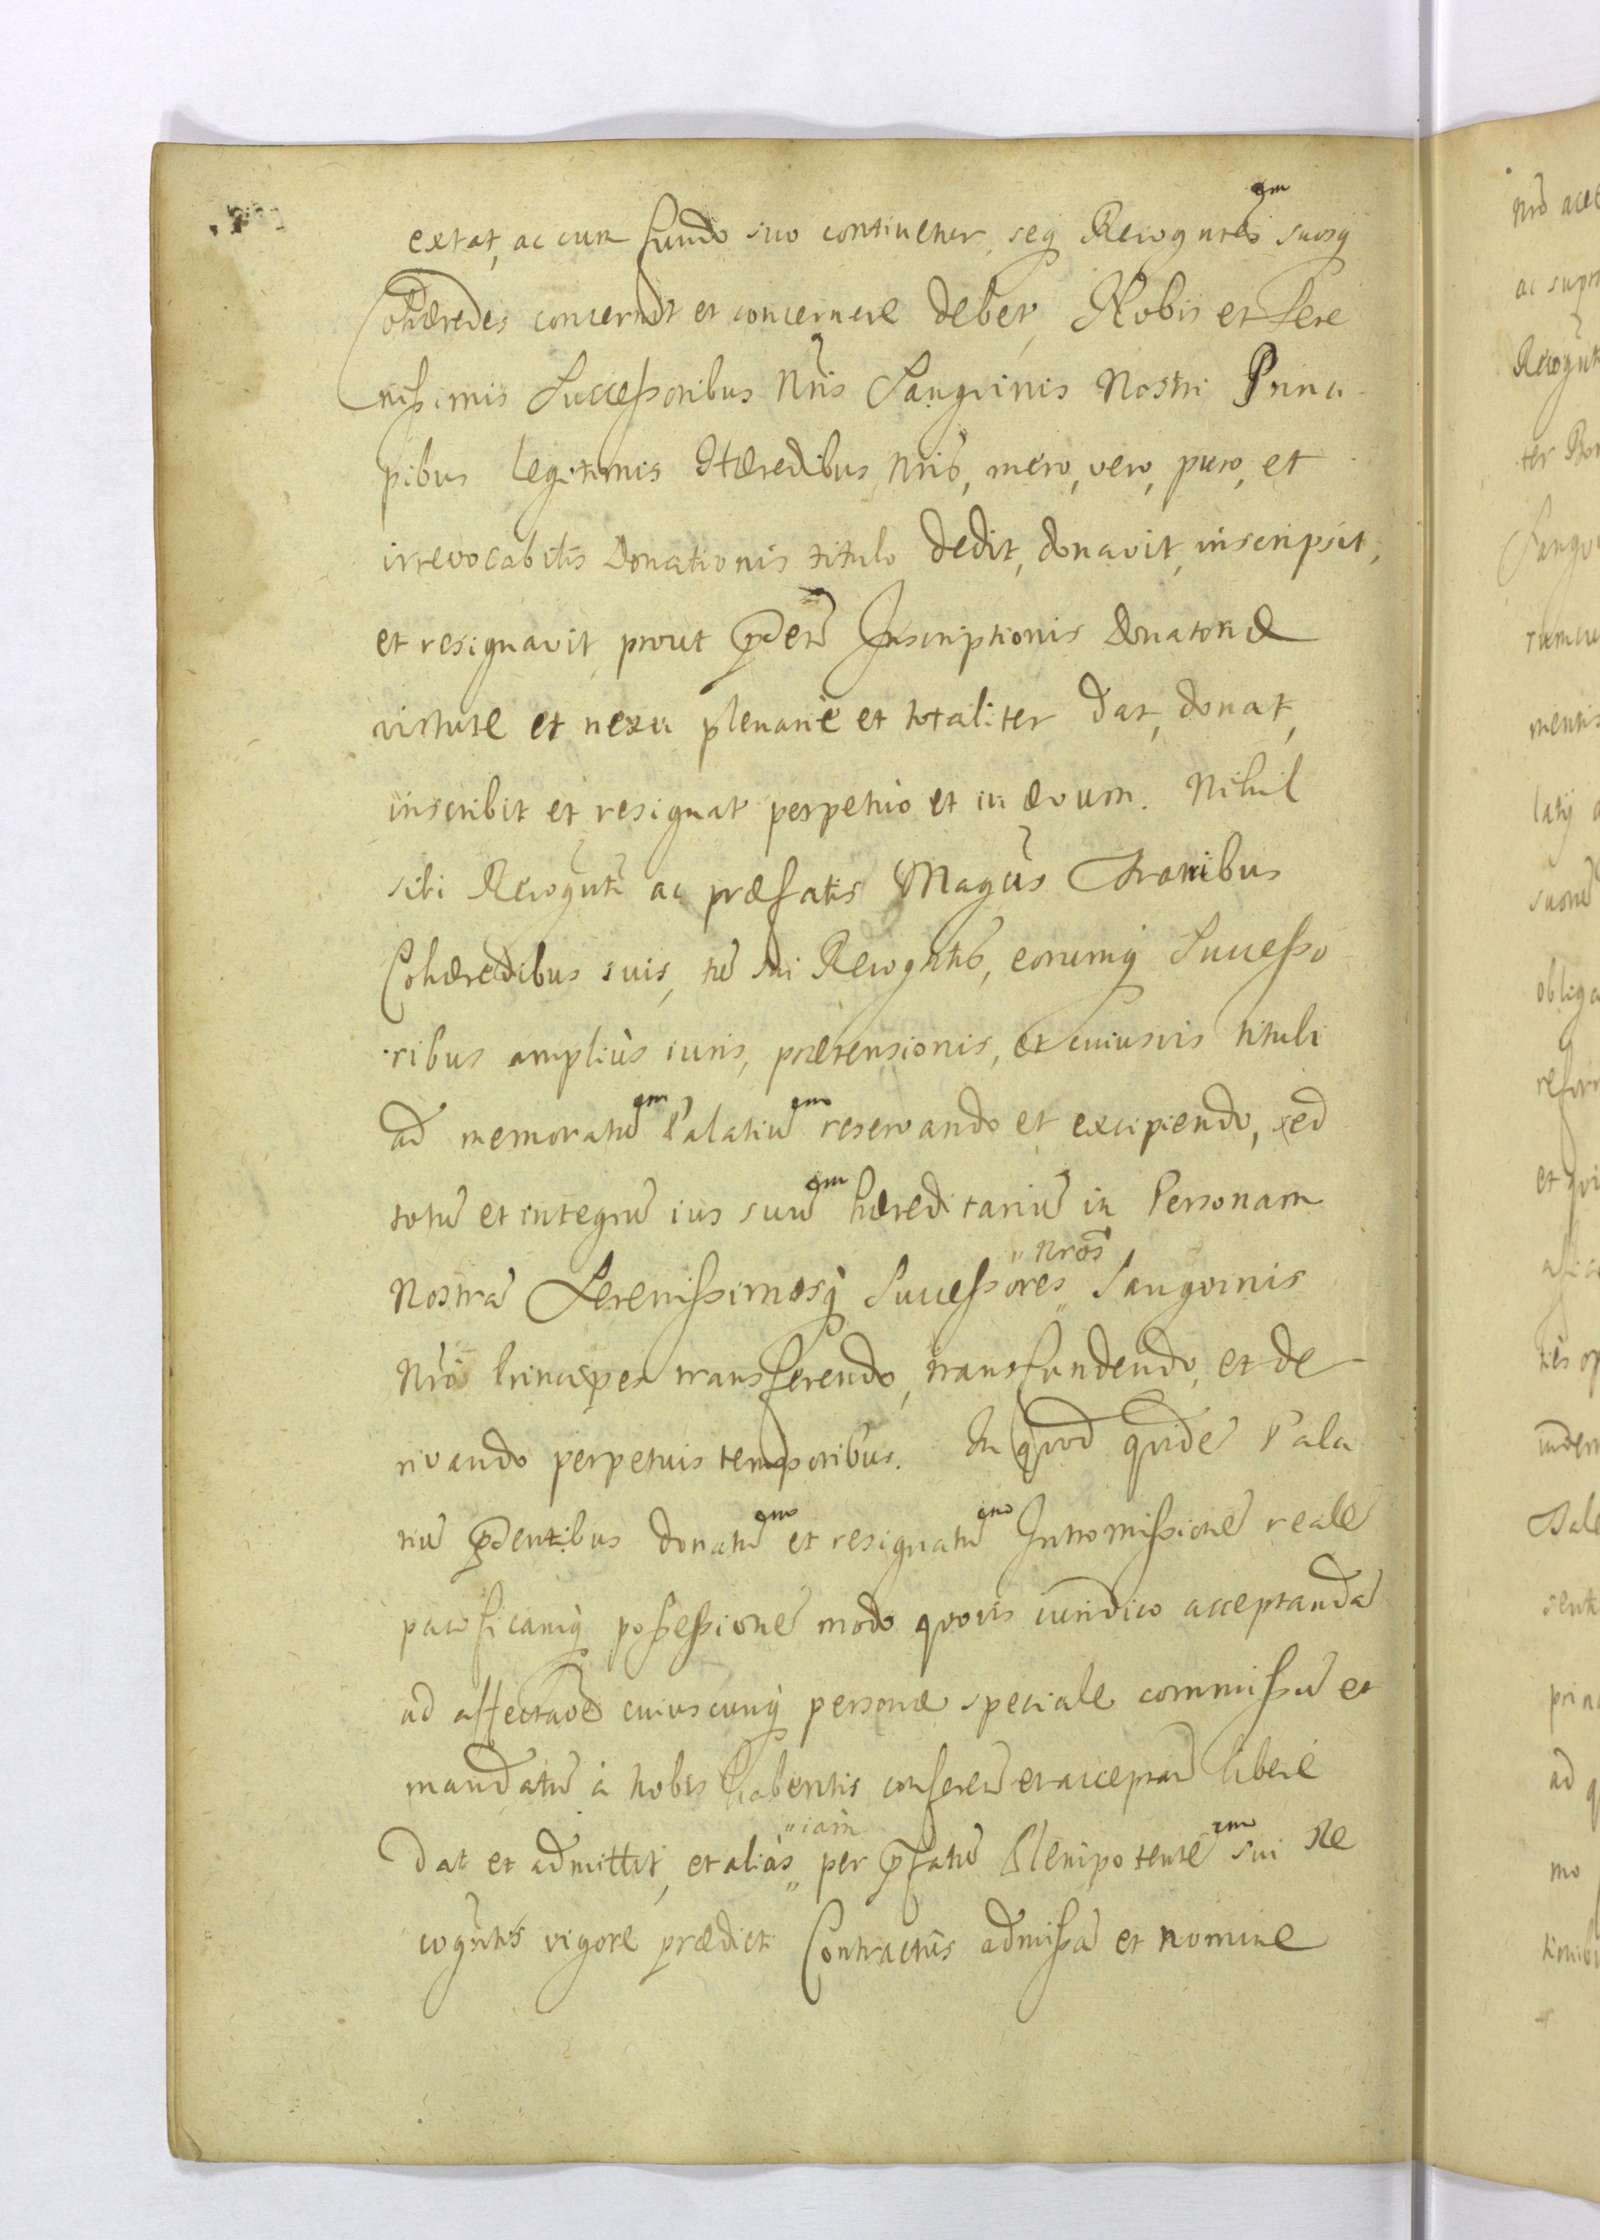 extat, ac cum fundo suo continetur, seq̃ Recogntẽ suosq̃
Cohæredes concernit et concernere debet, Nobis et Sere
nissimis Successoribus Nr̃is Sangvinis Nostri Princi
pibus legitimis Hæredibus Nr̃is, mero, vero, puro, et
irrevocabilis Donationis titulo dedit, donavit, inscripsit,
et resignavit, prout Inscriptionis Donatoriæ
virtute et nexu plenariè et totaliter dat, donat,
inscribit et resignat perpetuò et in ævum. Nihil
sibi Recogñti ac præfatis Magcis Fratribus
Cohæredibus suis, sui Recogñtis, eorumq̃ Successo
ribus ampliùs iuris, prætensionis, et cuiusvis tituli
ad memoratũ Palatiũ reservando et excipiendo, sed
totũ et integrũ ius suũ hæreditariũ in Personam
Nostrã Serenissimosq̃ Successores „Nros̃ Sangvinis
Nr̃i Principes transferendo, transfundendo, et de
rivando perpetuis temporibus. In quod quidẽ Pala
tiũ p̃dentibus donatũ et resignatũ Intromissionẽ realẽ
pacificamq̃ possessionẽ modo quovis iuridico acceptandã
ad affectaõẽ cuiuscunq̃ personæ speciale commissũ et
mandatũ à nobis habentis liberè
dat et admittit, et aliàs „iam per p̃fatũ Plenipotentẽ sui Re
cogñtis vigore prædicti Contractûs admissã et nomine